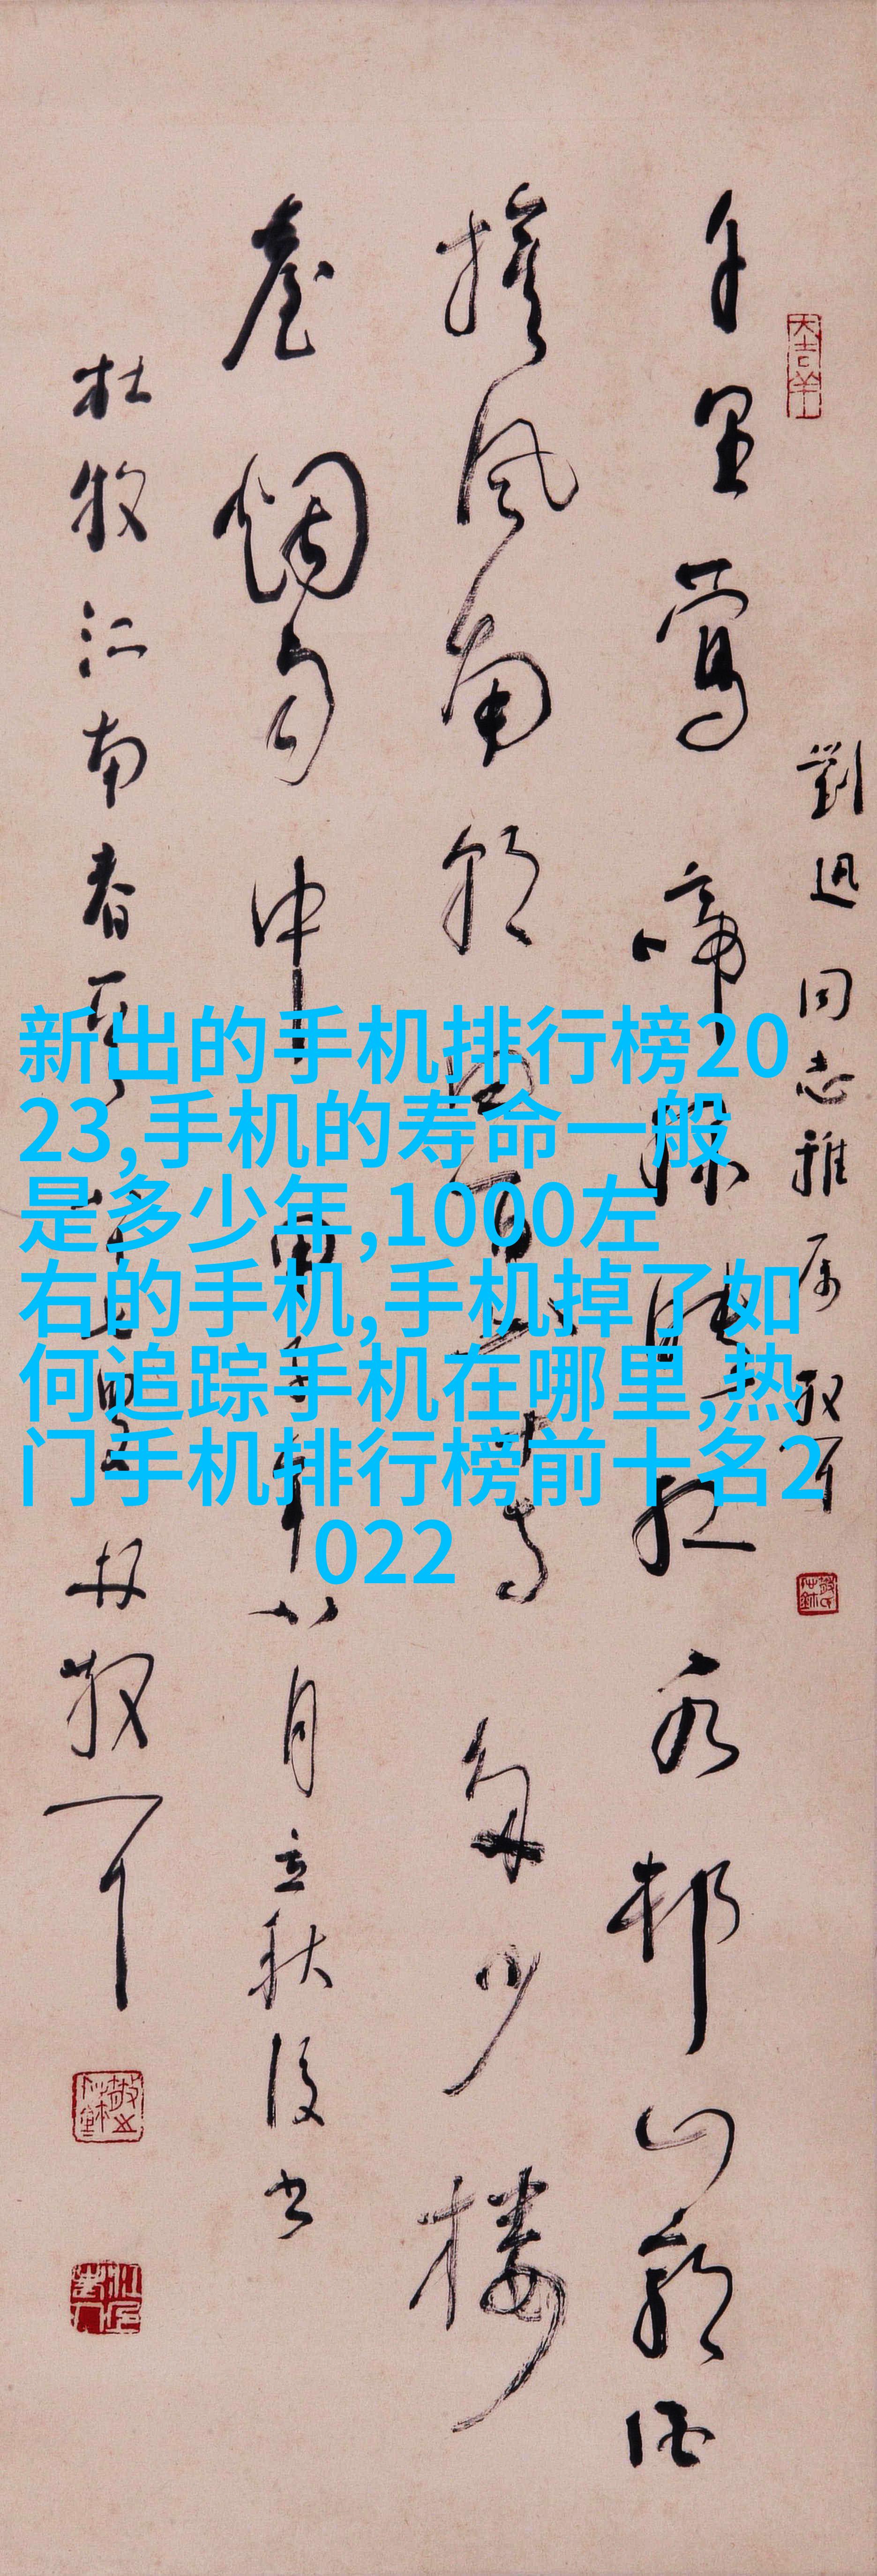 劉迅同志雅属
千里鶯啼綠映紅水邨山郭酒
旗风南朝四百八十寺多少楼
臺烟雨中 年八月立秋後书
杜牧江南春
新出的手机排行榜20
23,手机的寿命一般
是多少年,1000左
右的手机,手机掉了如
何追踪手机在哪里,热
门手机排行榜前十名2
022